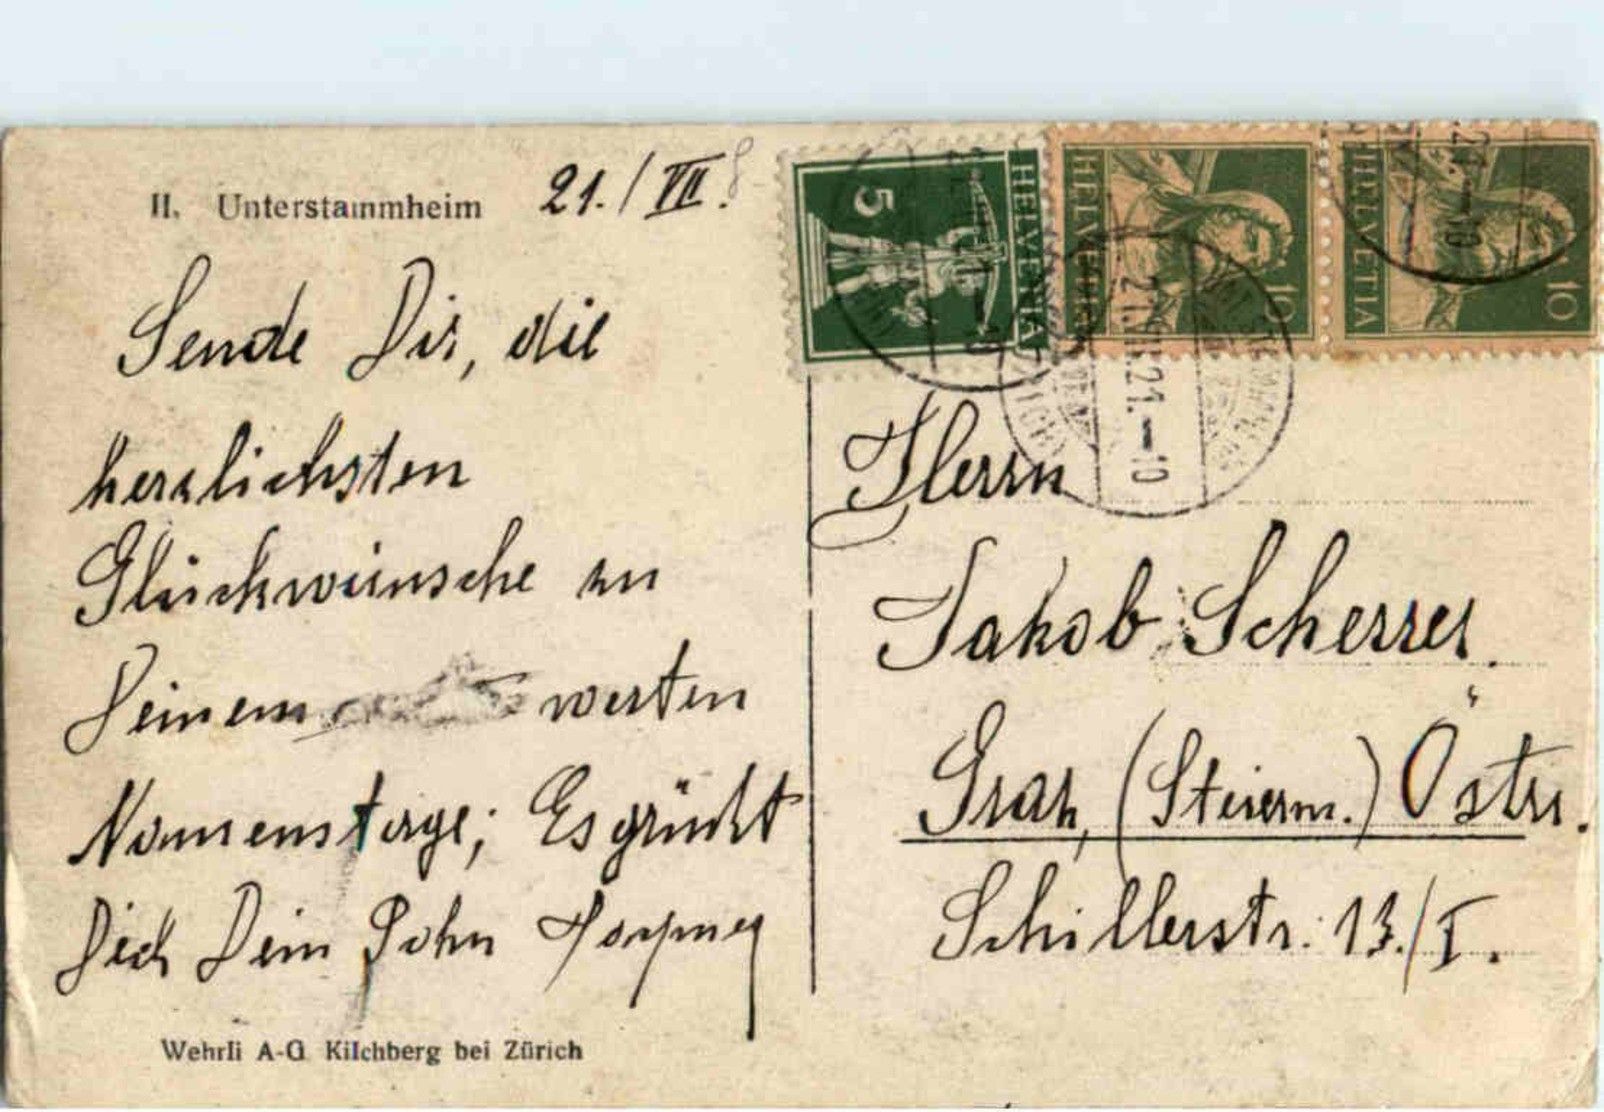 II. Unterstammheim 21./VII.
Sende Dir, die
herzlichsten
Glückwünsche zu
Deinem werten
Namenstage; Es grüßt
Dich Dein Sohn
Wehrli A-G Kilchberg bei Zürich
5 HELVETIA
HELVETIA 10
HELVETIA 10
21.VII.21.-10
Herrn
Jakob Scherrer.
Graz, (Steierm.) Östr.
Schillerstr. 13./I.